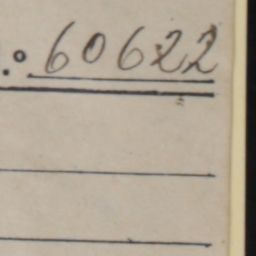 .º 60622